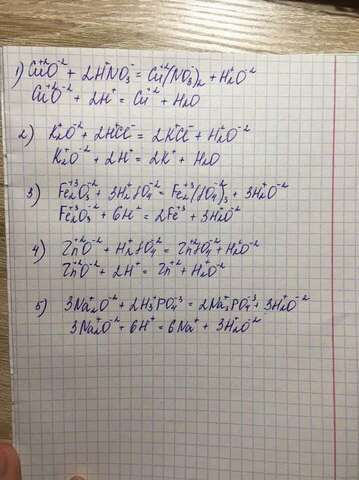 1) Cu⁺²O⁻² + 2H⁺NO₃⁻ = Cu⁺²(NO₃⁻)₂ + H₂⁺O⁻²
Cu⁺²O⁻² + 2H⁺ = Cu⁺² + H₂O
2) K₂⁺O⁻² + 2H⁺Cl⁻ = 2K⁺Cl⁻ + H₂⁺O⁻²
K₂⁺O⁻² + 2H⁺ = 2K⁺ + H₂O
3) Fe₂⁺³O₃⁻² + 3H₂⁺SO₄⁻² = Fe₂⁺³(SO₄⁻²)₃ + 3H₂⁺O⁻²
Fe₂⁺³O₃⁻² + 6H⁺ = 2Fe⁺³ + 3H₂⁺O⁻²
4) Zn⁺²O⁻² + H₂⁺SO₄⁻² = Zn⁺²SO₄⁻² + H₂⁺O⁻²
Zn⁺²O⁻² + 2H⁺ = Zn⁺² + H₂⁺O⁻²
5) 3Na₂⁺O⁻² + 2H₃⁺PO₄⁻³ = 2Na₃⁺PO₄⁻³ + 3H₂⁺O⁻²
3Na₂⁺O⁻² + 6H⁺ = 6Na⁺ + 3H₂⁺O⁻²